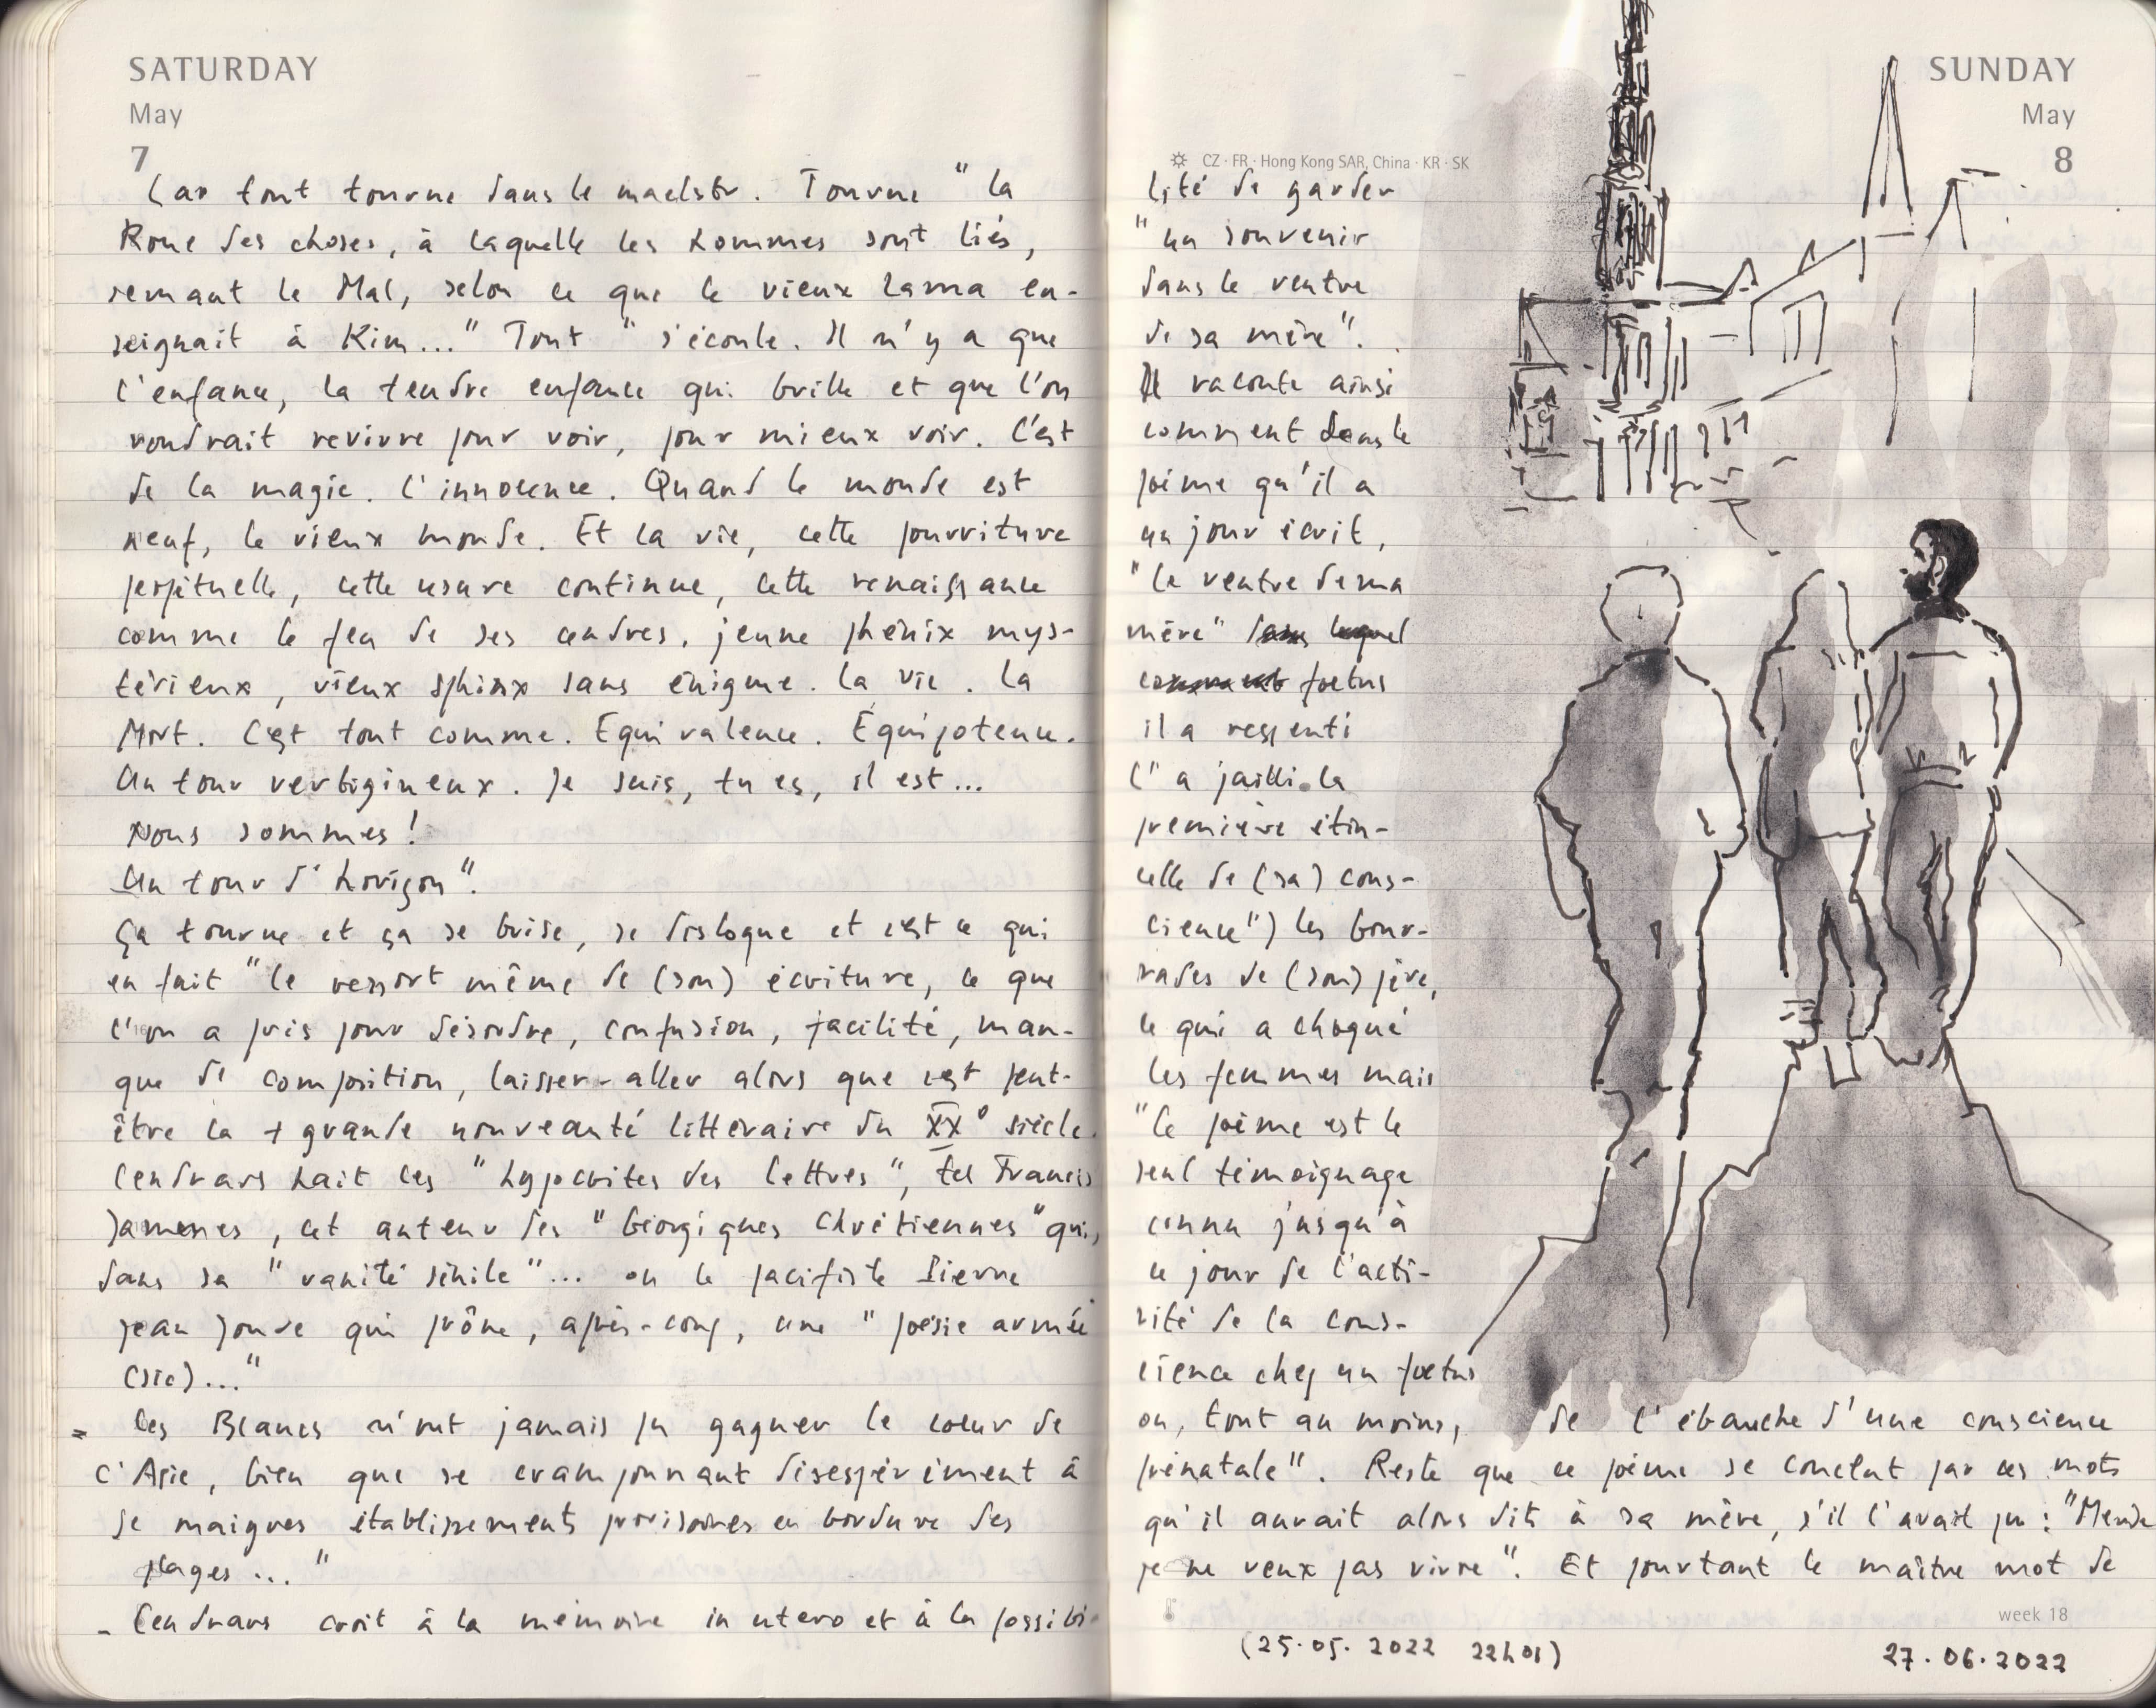 SATURDAY
May
7
Car tout tourne dans le maelstr. Tourne "la
Roue des choses, à laquelle les hommes sont liés,
semant le Mal, selon ce que le vieux Lama en-
seignait à Kim..." Tout "s'écoule. Il n'y a que
l'enfance, la tendre enfance qui brille et que l'on
voudrait revivre pour voir, pour mieux voir. C'est
de la magie. L'innocence. Quand le monde est
neuf, le vieux monde. Et la vie, cette pourriture
perpétuelle, cette usure continue, cette renaissance
comme le feu de ses cendres, jeune phénix mys-
térieux, vieux sphinx sans énigme. La vie. La
Mort. C'est tout comme. Équivalence. Équipotence.
Un tour vertigineux. Je suis, tu es, il est...
Nous sommes !
Un tour d'horizon".
Ça tourne et ça se brise, se disloque et c'est ce qui
en fait "le ressort même de (son) écriture, ce que
l'on a pris pour désordre, confusion, facilité, man-
que de composition, laisser-aller alors que c'est peut-
être la + grande nouveauté littéraire du XXº siècle.
Cendrars hait les "hypocrites des lettres", tel Francis
Jammes, cet auteur des "Géorgiques Chrétiennes" qui,
dans sa "vanité sénile"... ou le pacifiste Pierre
Jean Jouve qui prône, après-coup, une "poésie armée
(sic)..."
= Les Blancs n'ont jamais pu gagner le coeur de
l'Asie, bien que se cramponnant désespérément à
de maigres établissements provisoires en bordure des
plages..."
- Cendrars croit à la mémoire in utero et à la possibi-
SUNDAY
May
8
CZ · FR · Hong Kong SAR, China · KR · SK
lité de garder
"un souvenir
dans le ventre
de sa mère".
Il raconte ainsi
comment dans le
poème qu'il a
un jour écrit,
"le ventre de ma
mère" dans lequel
comment foetus
il a ressenti
("a jailli la
première étin-
celle de (sa) cons-
cience") les bour-
rades de (son) père,
ce qui a choqué
les femmes mais
"le poème est le
seul témoignage
connu jusqu'à
ce jour de l'acti-
vité de la cons-
cience chez un foetus
ou, tout au moins, de l'ébauche d'une conscience
prénatale". Reste que ce poème se conclut par ces mots
qu'il aurait alors dits à sa mère, s'il l'avait pu : "Merde
je ne veux pas vivre". Et pourtant le maître mot de
week 18
(25.05.2022 22h01)
27.06.2022